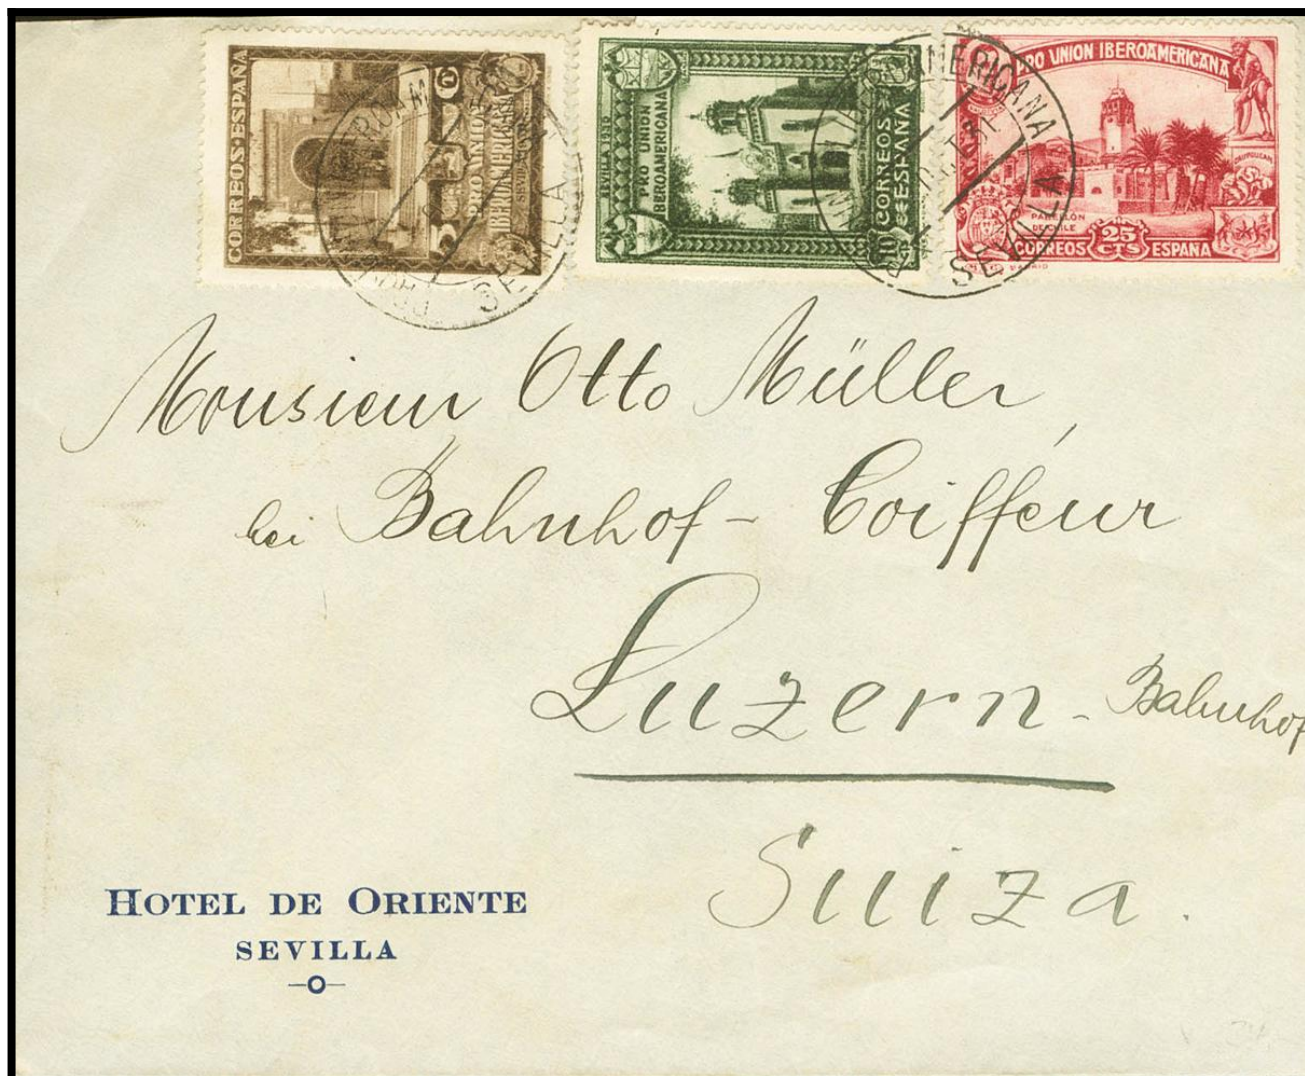 CORREOS·ESPAÑA
5 CTS
PRO UNION
IBEROAMERICANA
SEVILLA
SEVILLA 1930
PRO UNION
IBEROAMERICANA
10
CORREOS
ESPAÑA
AMERICANA
31
SEVILLA
PRO UNION IBEROAMERICANA
CAUPOLICAN
PABELLÓN
DE CHILE
CORREOS 25 CTS ESPAÑA
MADRID
Monsieur Otto Müller
bei Bahnhof - Coiffeur
Luzern - Bahnhof
Suiza.
HOTEL DE ORIENTE
SEVILLA